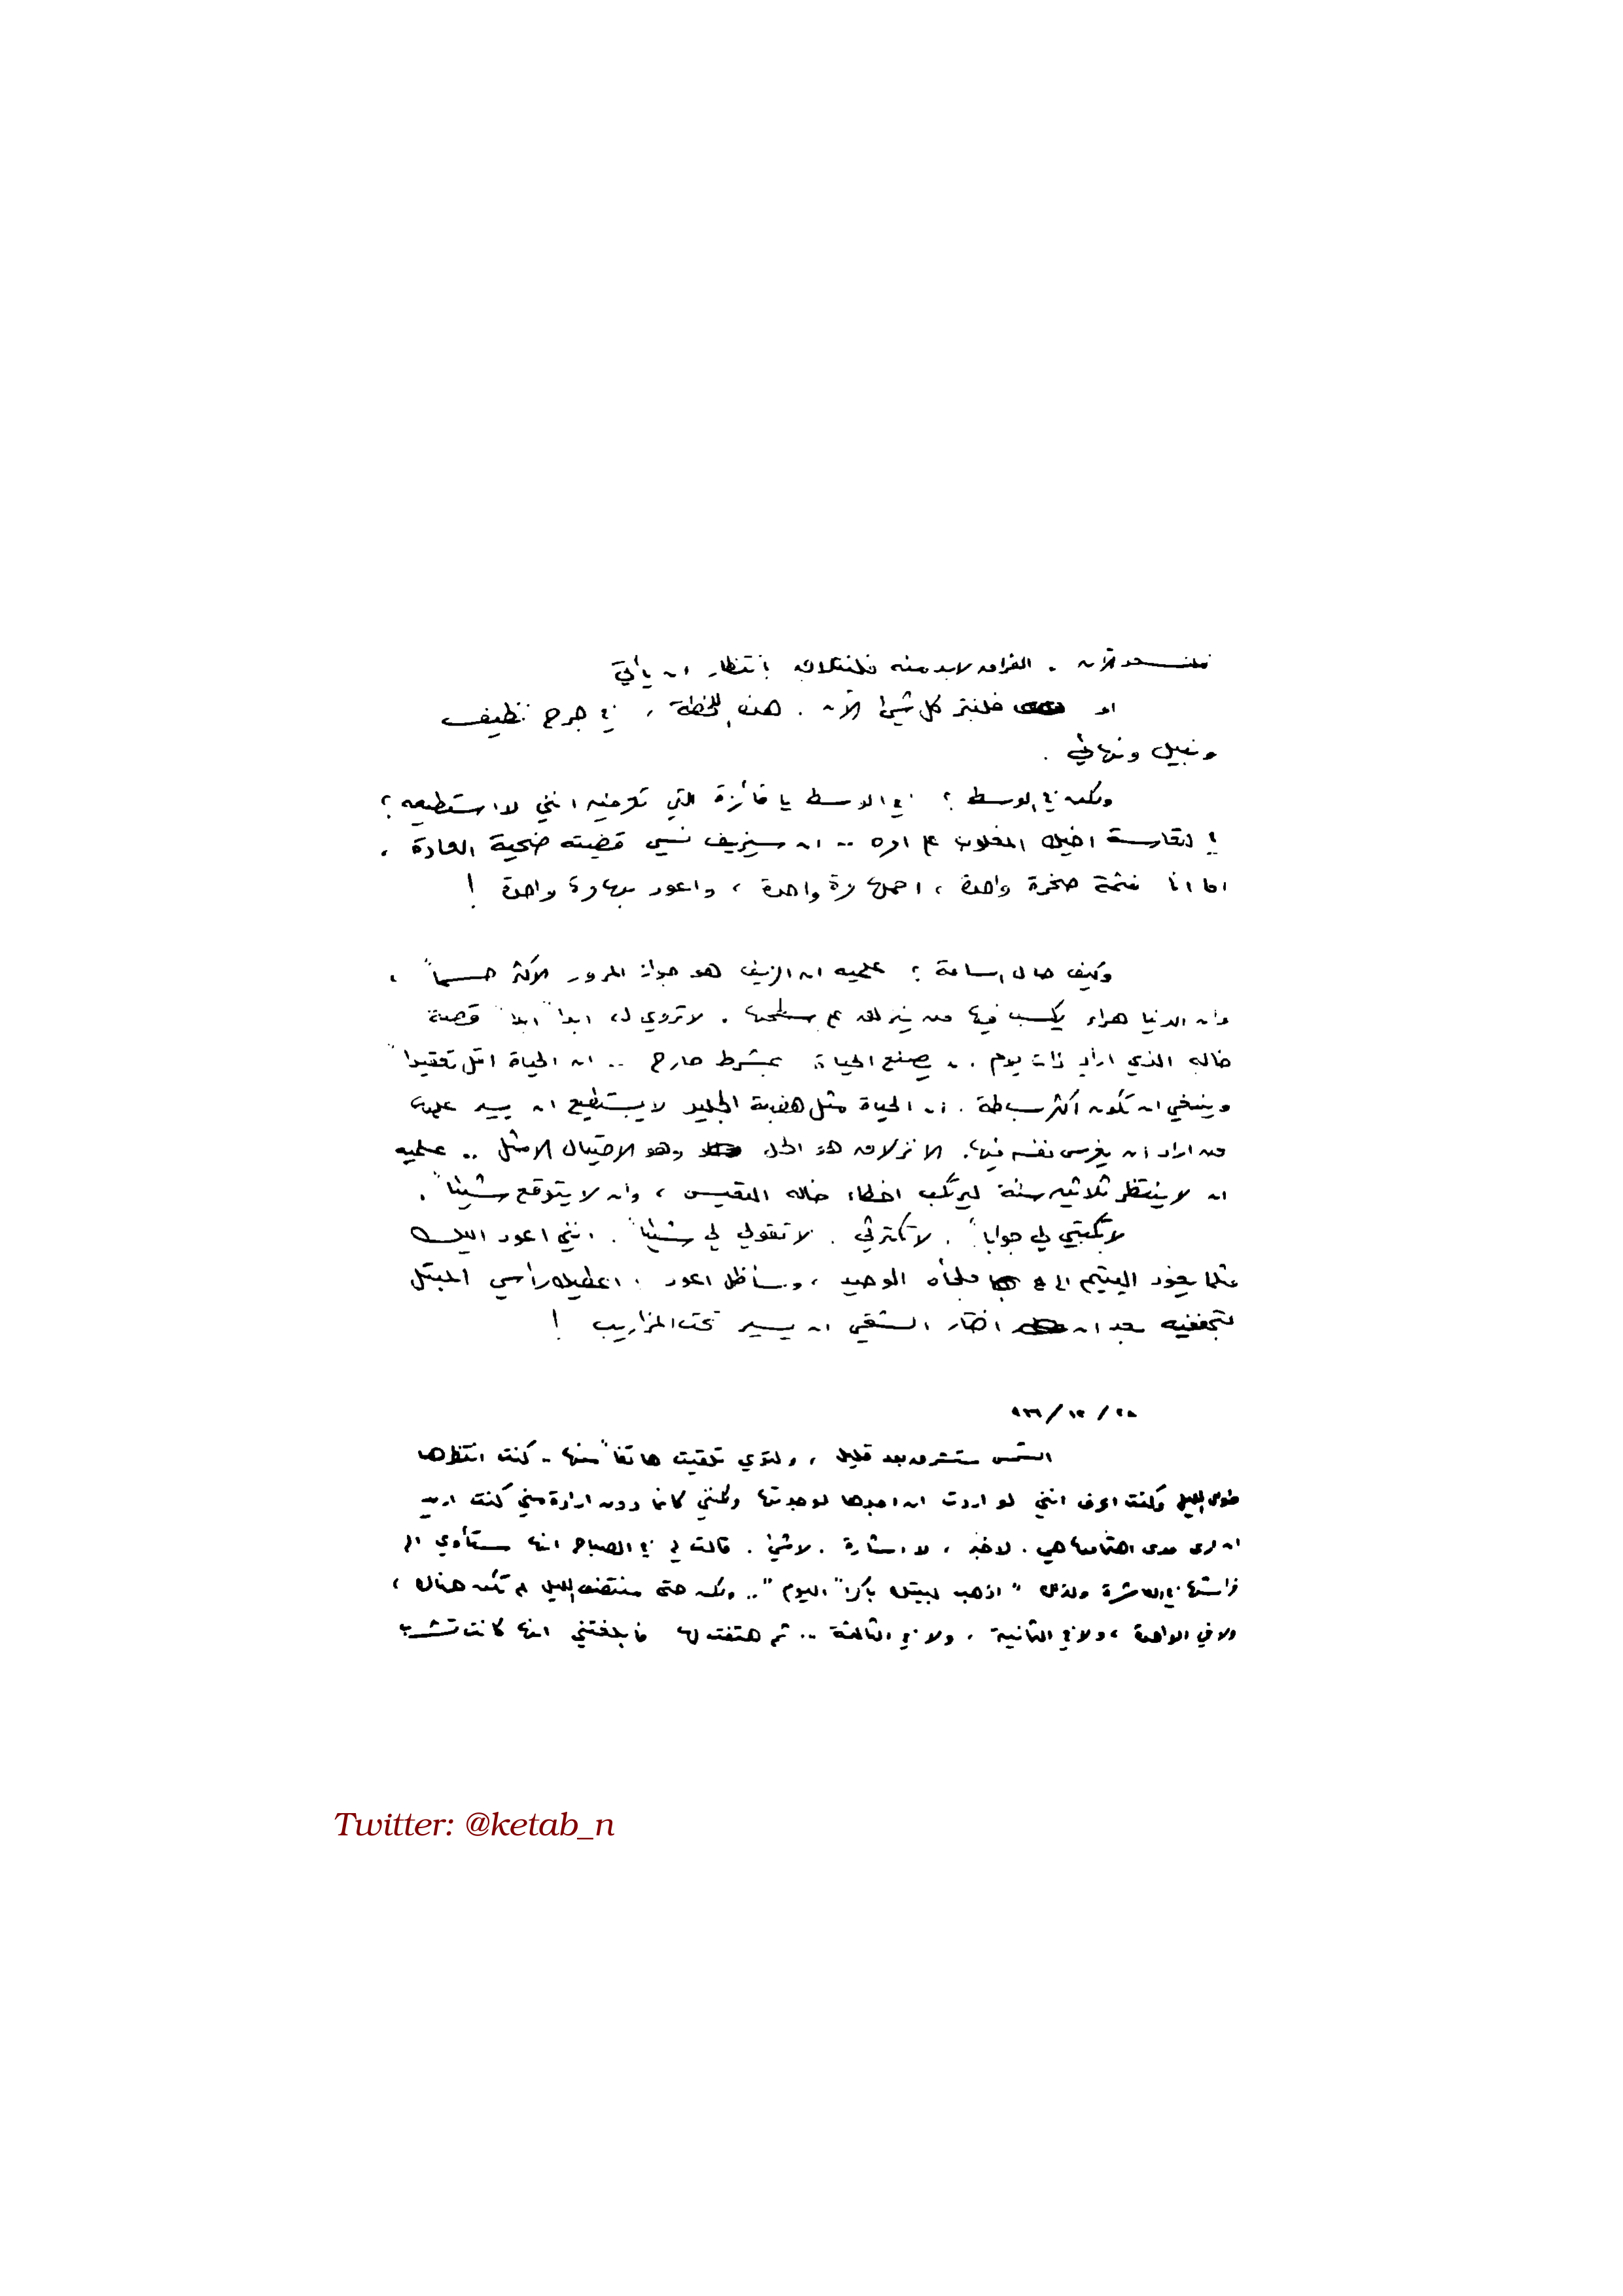 فلنسعد الآن . الفراق لابد منه فلنتكلله بإنتظار ان يأتي
او فلنبتر كل شيء الآن . هذه اللحظة ، في جرح نظيف
ونبيل ونهائي .
ولكن في الوسط ؟ في الوسط يا فائزة التي تعرفين انني لا استطيعه ؟
اخيك المغلوب على امره .. ان سيزيف نسي قضيته ضحية العادة .
اما انا فثمة صخرة واحدة ، احملها مرة واحدة ، واعود بها مرة واحدة !
وكيف حال اسامة ؟ علميه ان الزيف هو جواز المرور الأكثر حسماً ،
وان الدنيا هراء يكسب فيها من ينزلق على سطحها . لا تروي له ابداً ابداً قصة
خاله الذي اراد ذات يوم ان يصنع الحياة بمشرط جارح .. ان الحياة اقل تعقيداً
وينبغي ان تكون اكثر بساطة . ان الحياة مثل هضبة الجليد لا يستطيع ان يسير عليها
من اراد ان يغرس نفسه فيها. الانزلاق هو الحل وهو الاحتيال الامثل .. علميه
ان لا ينتظر ثلاثين سنة ليرتكب اخطاء خاله التعيس ، وان لا يتوقع شيئاً .
لا تكتبي لي جواباً . لا تكترثي . لا تقولي لي شيئاً . انني اعود اليك
مثلما يعود اليتيم الى ملجأه الوحيد ، وسأظل اعود . اعطيك رأسي المبتل
لتجففيه بعد ان اختار الشقي ان يسير تحت المزاريب !
الشمس ستشرق بعد قليل ، ولتوي تلقيت هاتفاً منها - كنت انتظرها
طوال الليل وكنت اعرف انني لو اردت ان اجدها لوجدتها ولكنني كأنما دون ارادة مني كنت اريد
ان ارى مدى اهتمامها هي . لا خبر ، لا اشارة . لا شيء . قالت لي في الصباح انها ستأوي الى
فراشها في العاشرة ولذلك " اذهب لبيتك باكراً اليوم ".. ولكن حتى منتصف الليل لم تكن هناك ،
ولا في الواحدة ، ولا في الثانية ، ولا في الثالثة .. ثم هتفت لها فأبلغتني انها كانت تشرب
Twitter: @ketab_n